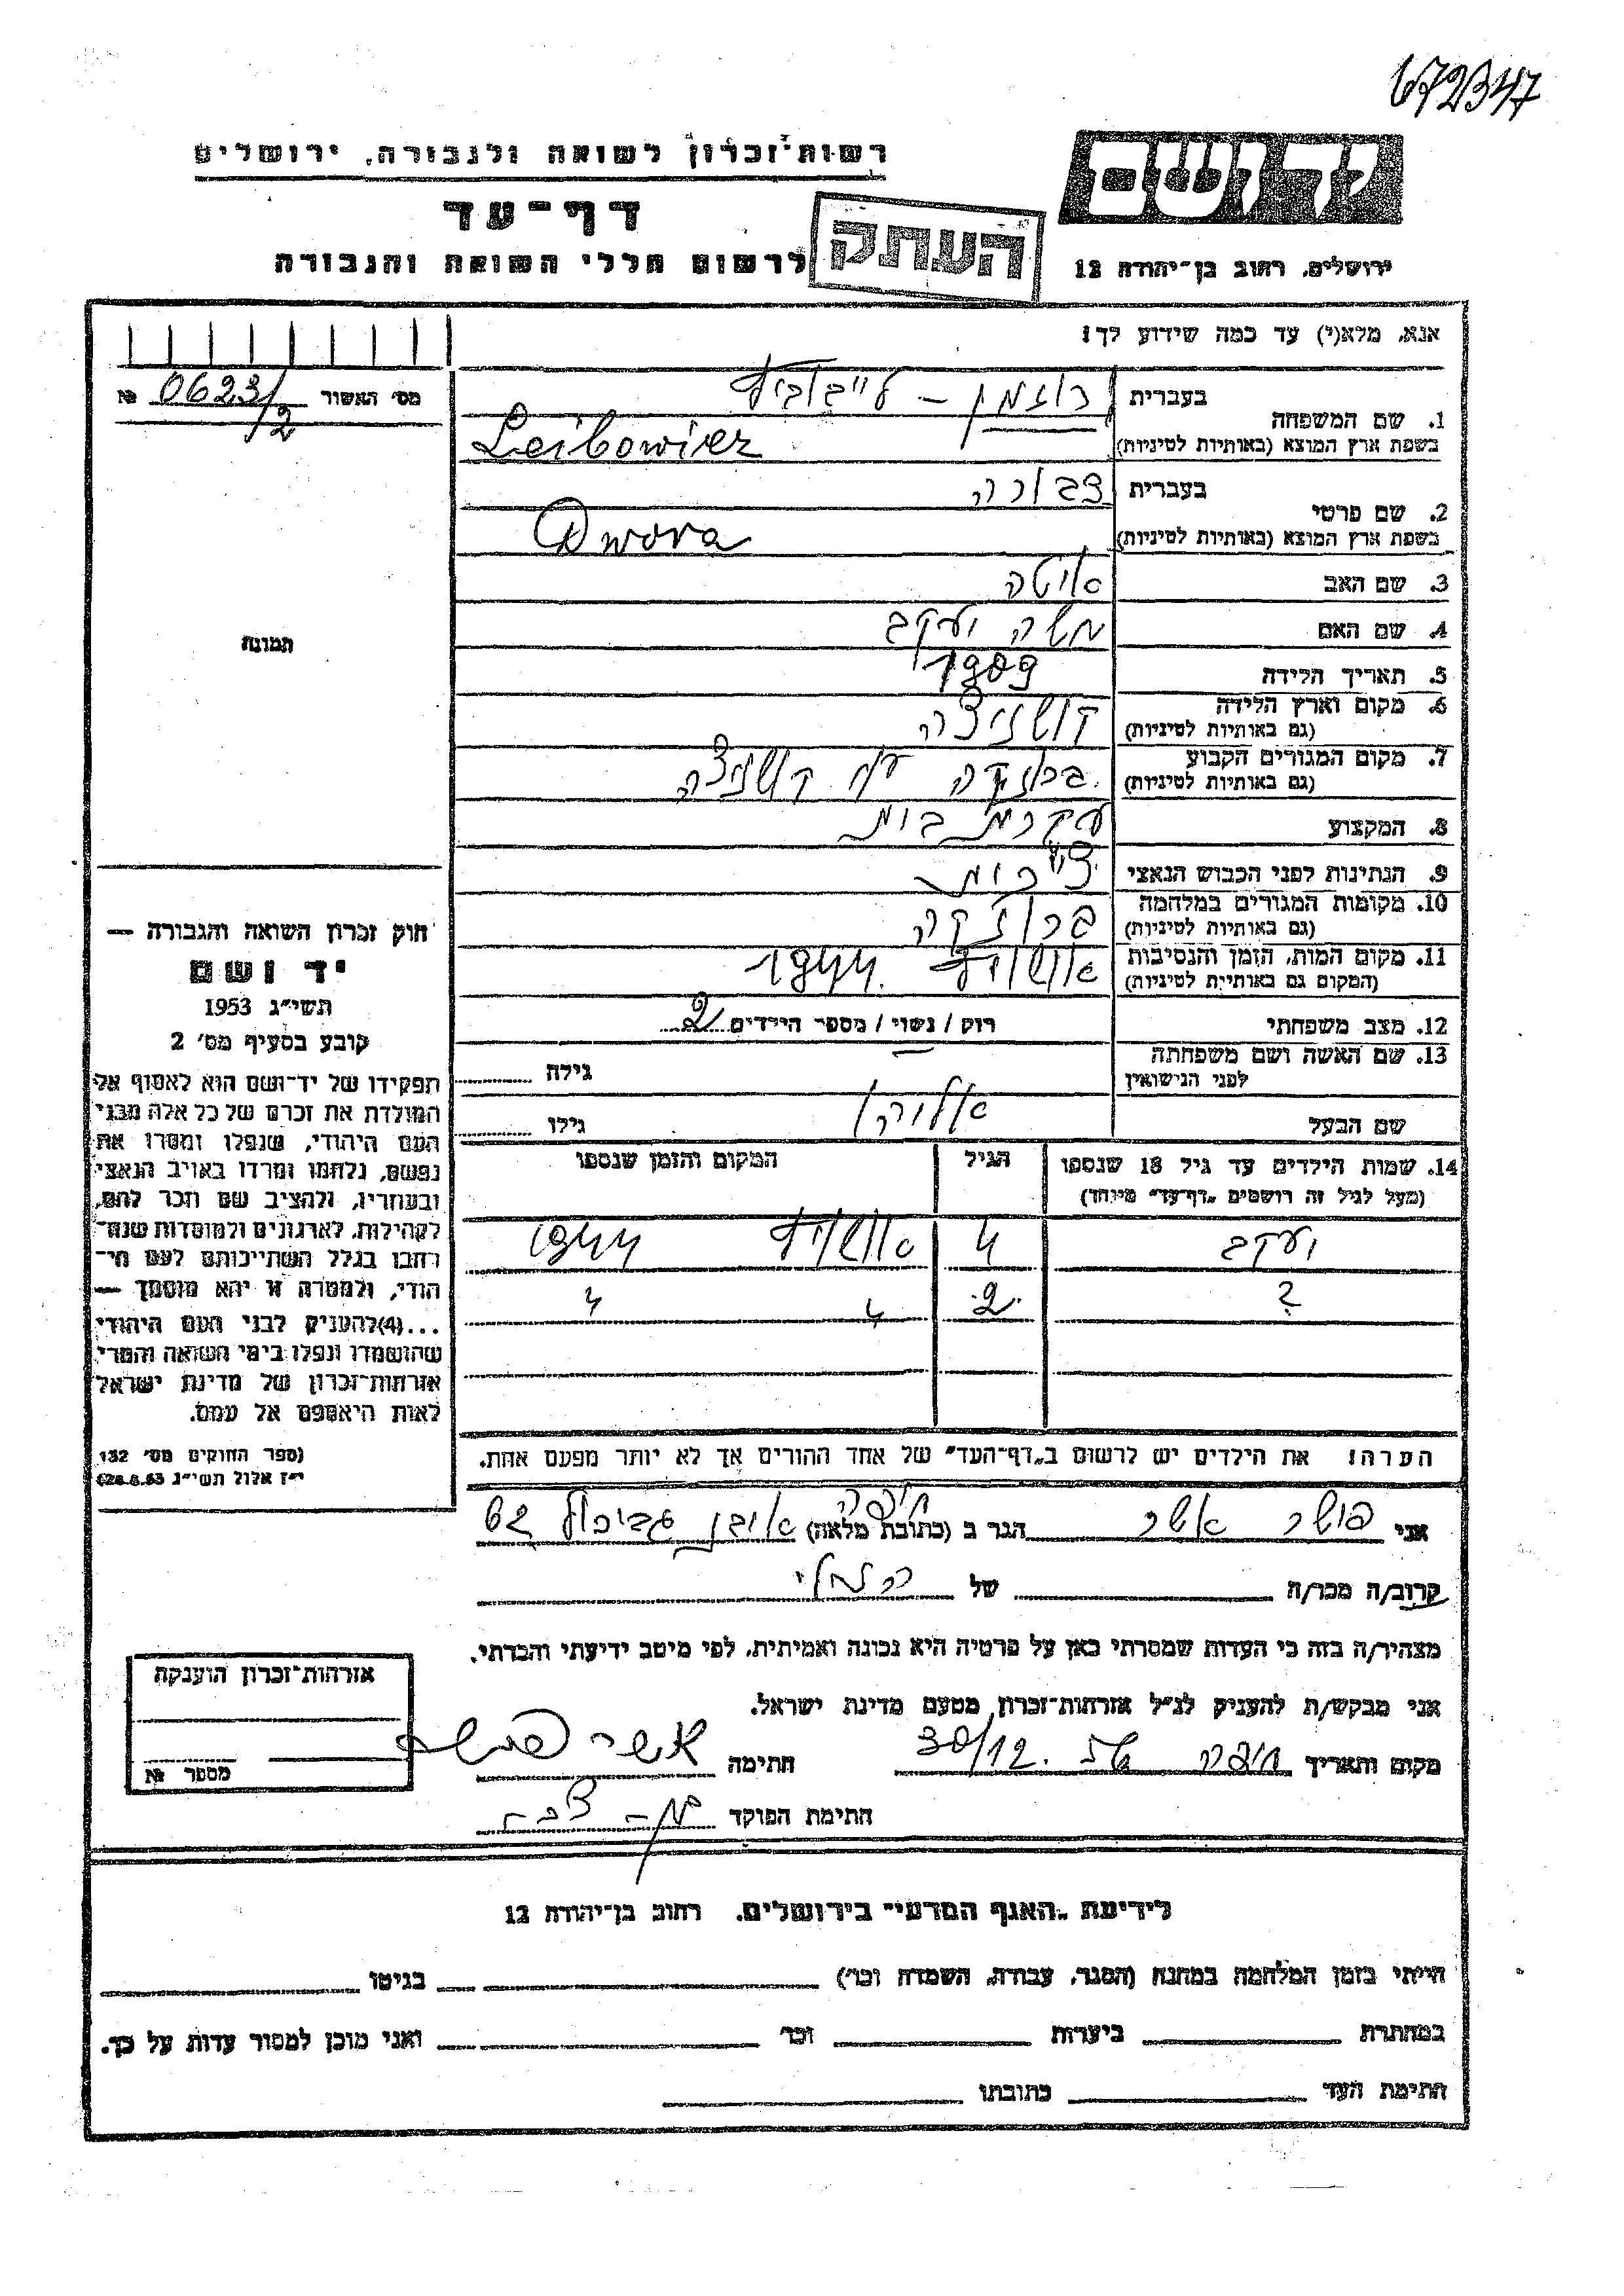 672347
רשות־זכרון לשואה ולגבורה, ירושלים
יד ושם
דף־עד
העתק
לרשום חללי השואה והגבורה
ירושלים, רחוב בן־יהודה 12
אנא, מלא(י) עד כמה שידוע לך!
מס׳ האשור № 0623/2
תמונה
1. שם המשפחה
בעברית רוזמן - לייבוביץ
בשפת ארץ המוצא (באותיות לטיניות) Leibowicz
2. שם פרטי
בעברית דבורה
בשפת ארץ המוצא (באותיות לטיניות) Dwora
3. שם האב איטה
4. שם האם משה יעקב
5. תאריך הלידה 1909
6. מקום וארץ הלידה
(גם באותיות לטיניות) קושניצה
7. מקום המגורים הקבוע
(גם באותיות לטיניות) ברונקה ע״י קושניצה
8. המקצוע עקרת בית
9. הנתינות לפני הכבוש הנאצי צ׳כית
10. מקומות המגורים במלחמה
(גם באותיות לטיניות) ברונקה
11. מקום המות, הזמן והנסיבות
(המקום גם באותיות לטיניות) אושויץ 1944
12. מצב משפחתי רווק / נשוי / מספר הילדים 2
13. שם האשה ושם משפחתה
לפני הנישואין גילה
שם הבעל גילו
14. שמות הילדים עד גיל 18 שנספו הגיל המקום והזמן שנספו
(מעל לגיל זה רושמים ״דף־עד״ מיוחד)
יעקב 4 אושויץ 1944
? 2 " "
הערה: את הילדים יש לרשום ב״דף־העד״ של אחד ההורים אך לא יותר מפעם אחת.
חוק זכרון השואה והגבורה —
יד ושם
תשי״ג 1953
קובע בסעיף מס׳ 2
תפקידו של יד־ושם הוא לאסוף אל
המולדת את זכרם של כל אלה מבני
העם היהודי, שנפלו ומסרו את
נפשם, נלחמו ומרדו באויב הנאצי
ובעוזריו, ולהציב שם וזכר להם,
לקהילות, לארגונים ולמוסדות שנח־
רבו בגלל השתייכותם לעם הי־
הודי, ולמטרה זו יהא מוסמך —
...(4)להעניק לבני העם היהודי
שהושמדו ונפלו בימי השואה והמרי
אזרחות־זכרון של מדינת ישראל
לאות היאספם אל עמם.
(ספר החוקים מס׳ 132
י״ז אלול תשי״ג 28.8.53)
אני אשר הגר ב (כתובת מלאה) חיפה אבן גבירול 62
קרוב/ה מכר/ה של
מצהיר/ה בזה כי העדות שמסרתי כאן על פרטיה היא נכונה ואמיתית, לפי מיטב ידיעתי והכרתי.
אני מבקש/ת להעניק לנ״ל אזרחות־זכרון מטעם מדינת ישראל.
מקום ותאריך חיפה 30/12 חתימה אשר
חתימת הפוקד
אזרחות־זכרון הוענקה
מספר №
לידיעת ״האגף המדעי״ בירושלים, רחוב בן־יהודה 12
הייתי בזמן המלחמה במחנה (הסגר, עבודה, השמדה וכו׳) בגיטו
במחתרת ביערות וכו׳ ואני מוכן למסור עדות על כך.
חתימת העד כתובתו